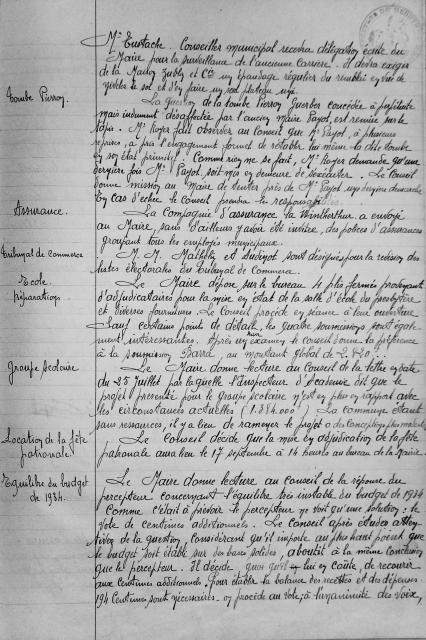 Mr Eustache. Conseiller municipal recevra délégation écrite du
Maire pour la surveillance de l'ancienne carrière. Il devra exiger
de la Maison Zubly et Cie un épandage régulier du remblai en vue de
niveler le sol et d'en faire un seul plateau uni.
Tombe Pierron.
La question de la tombe Pierron Guerber concédée à perpétuité
mais indument désaffectée par l'ancien maire Payot, est remise sur le
tapis. Mr Royer fait observer au Conseil que Mr Payot, à plusieurs
reprises, a pris l'engagement formel de rétablir lui même la dite tombe
en son état primitif. Comme rien ne se fait, Mr Royer demande qu'une
dernière fois Mr Payot, soit mis en demeure de s'exécuter. Le Conseil
donne mission au Maire de tenter près de Mr Payot, une dernière démarche.
En cas d'échec le Conseil prendra les responsabilités.
Assurance.
La Compagnie d'assurance la Winterthur a envoyé
au Maire, sans d'ailleurs y avoir été invitée, des polices d'assurances
groupant tous les employés municipaux.
Tribunal de commerce
M. M. Mathelz et Sudirot sont désignés pour la révision des
listes électorales du Tribunal de Commerce.
Ecole
réparations.
Le Maire dépose sur le bureau 4 plis fermés provenant
d'adjudicataires pour la mise en état de la salle d'école du presbytère
et diverses fournitures. Le Conseil procède en séance à leur ouverture.
Sauf certains points de détail, les quatre soumissions sont égale
ment intéressantes. Après examen, le conseil donne la préférence
à la soumission Barra, au montant global de
Groupe scolaire
Le Maire donne lecture au Conseil de la lettre en date
du 25 Juillet par laquelle l'Inspecteur d'Académie dit que le
projet présenté pour le groupe scolaire n'est en plus en rapport avec
les circonstances actuelles (1.384.000). La commune étant
sans ressources, il y a lieu de ramener le projet à des conceptions plus modestes.
Location de la fête
patronale.
Le Conseil décide que la mise en adjudication de la fête
patronale aura lieu le 17 septembre à 14 heures au bureau de la Mairie.
Equilibre du budget
de 1934.
Le Maire donne lecture au conseil de la réponse du
percepteur concernant l'équilibre très instable du budget de 1934
Comme c'était à prévoir le percepteur ne voit qu'une solution : le
vote de centimes additionnels. Le Conseil après études atten
tives de la question, considérant qu'il importe au plus haut point que
le budget soit établi sur des bases solides, aboutit à la même conclusion
que le percepteur. Il décide, quoi qu'il lui en coûte, de recourir
aux centimes additionnels. Pour établir la balance des recettes et des dépenses
194 centimes sont nécessaires. On procède au vote, à l'unanimité des voix,